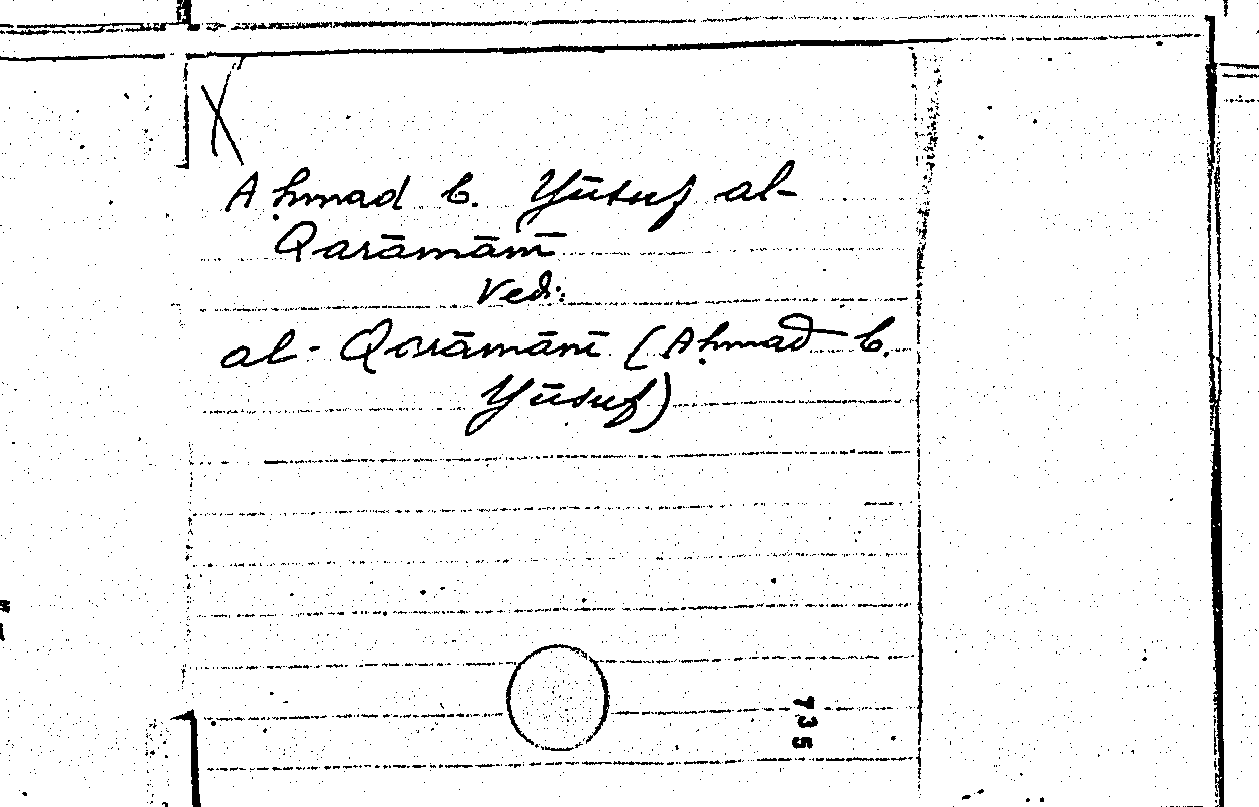 X
Aḥmad b. Yūsuf al-
Qaramānī
Vedi:
al-Qaramānī (Aḥmad b.
Yūsuf)
735